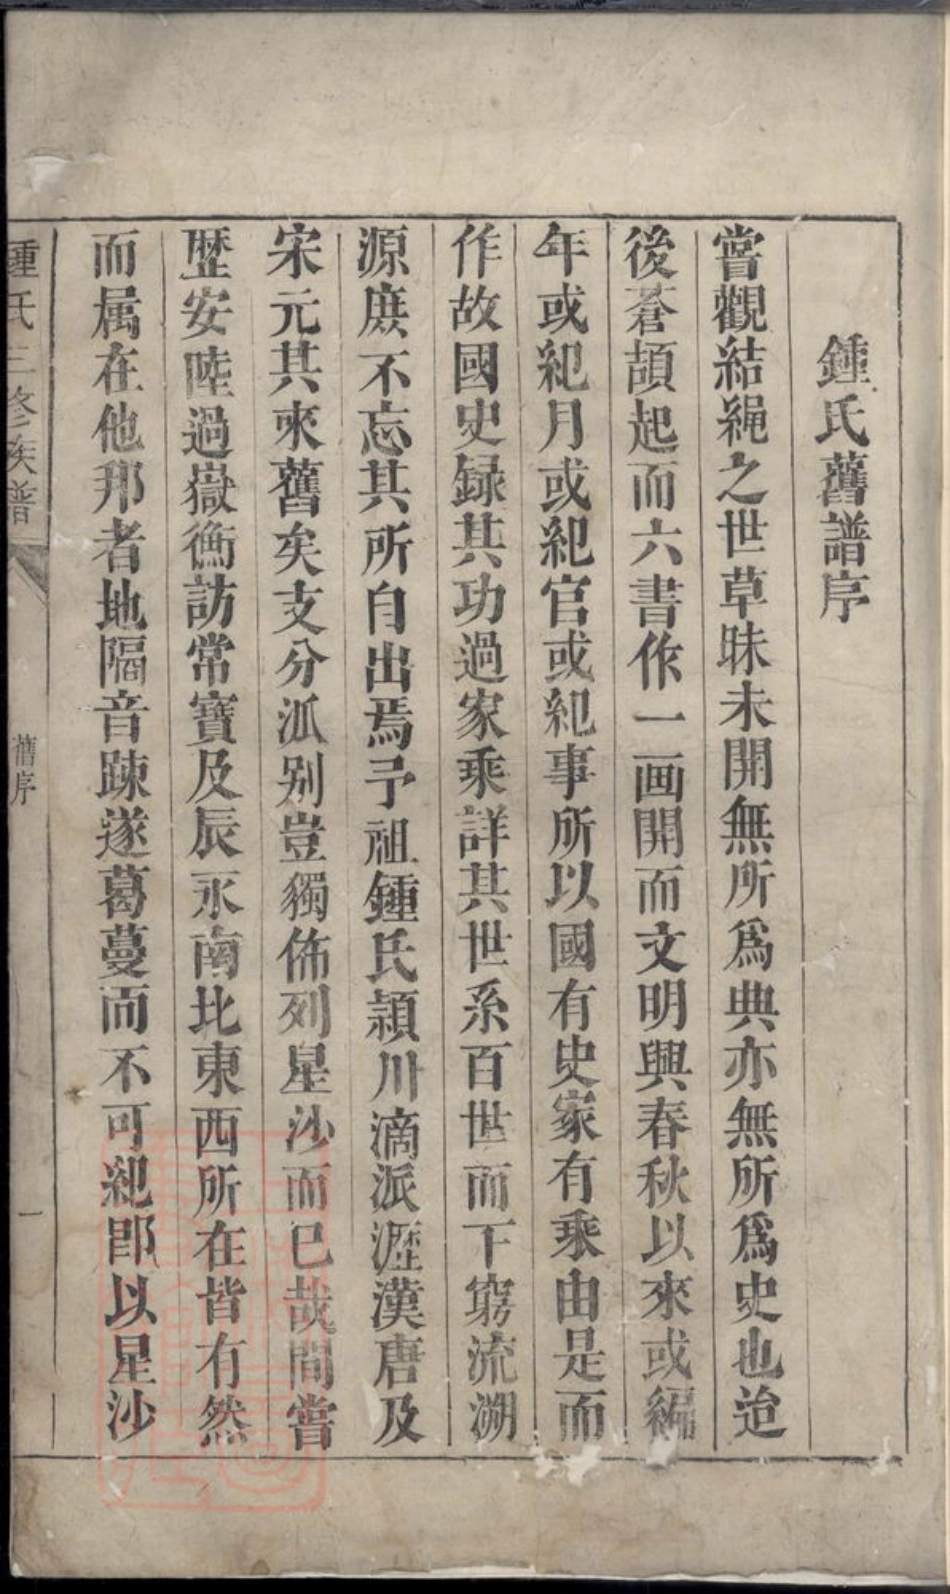 鍾氏舊譜序
嘗觀結繩之世草昧未開無所爲典亦無所爲史也迨
後蒼頡起而六書作一画開而文明興春秋以來或編
年或紀月或紀官或紀事所以國有史家有乘由是而
作故國史録其功過家乘詳其世系百世而下窮流溯
源庶不忘其所自出焉予祖鍾氏頴川滴派瀝漢唐及
宋元其來舊矣支分泒别豈獨佈列星沙而已哉間嘗
歴安陸過嶽衡訪常寳及辰永南北東西所在皆有然
而属在他邦者地隔音踈遂葛蔓而不可紀即以星沙
鍾氏三修族譜
舊序
一